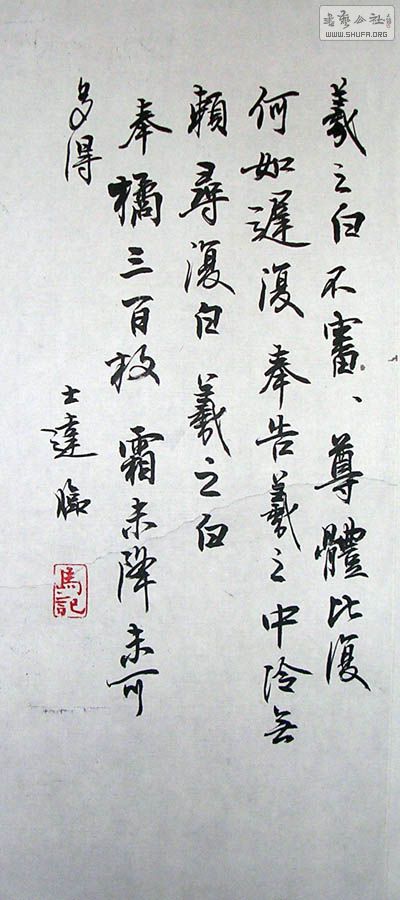 羲之白不審、尊體比復
何如遲復奉告羲之中冷無
賴尋復白羲之白
奉橘三百枚霜未降未可
多得
士達臨
馬記
書藝公社
WWW.SHUFA.ORG